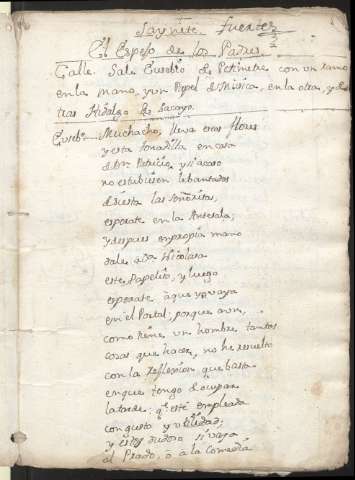 Saynete. Fuentes
El Espejo de los Padres
Calle. Sale Eusebio de Petimetre con un ramo
en la mano, y un Papel de Musica, en la otra, y
tras Hidalgo de Lacayo.
Euseb. Muchacho, lleva esas flores
y esta tonadilla en casa
de Dn Patricio, y si acaso
no estubiesen lebantadas
de siesta las Señoritas,
esperate en la Antesala;
y despues en propia mano
dale a Da Nicolasa
este Papelito, y luego
esperate à que yo vaya
en el Portal; porque aun,
como tiene un hombre tantas
cosas que hacer, no he resuelto
con la reflexion que basta
en que tengo de ocupar
la tarde; qe esté empleada
con gusto y utilidad;
y estoy dudoso si vaya
al Prado, ò à la Comedia